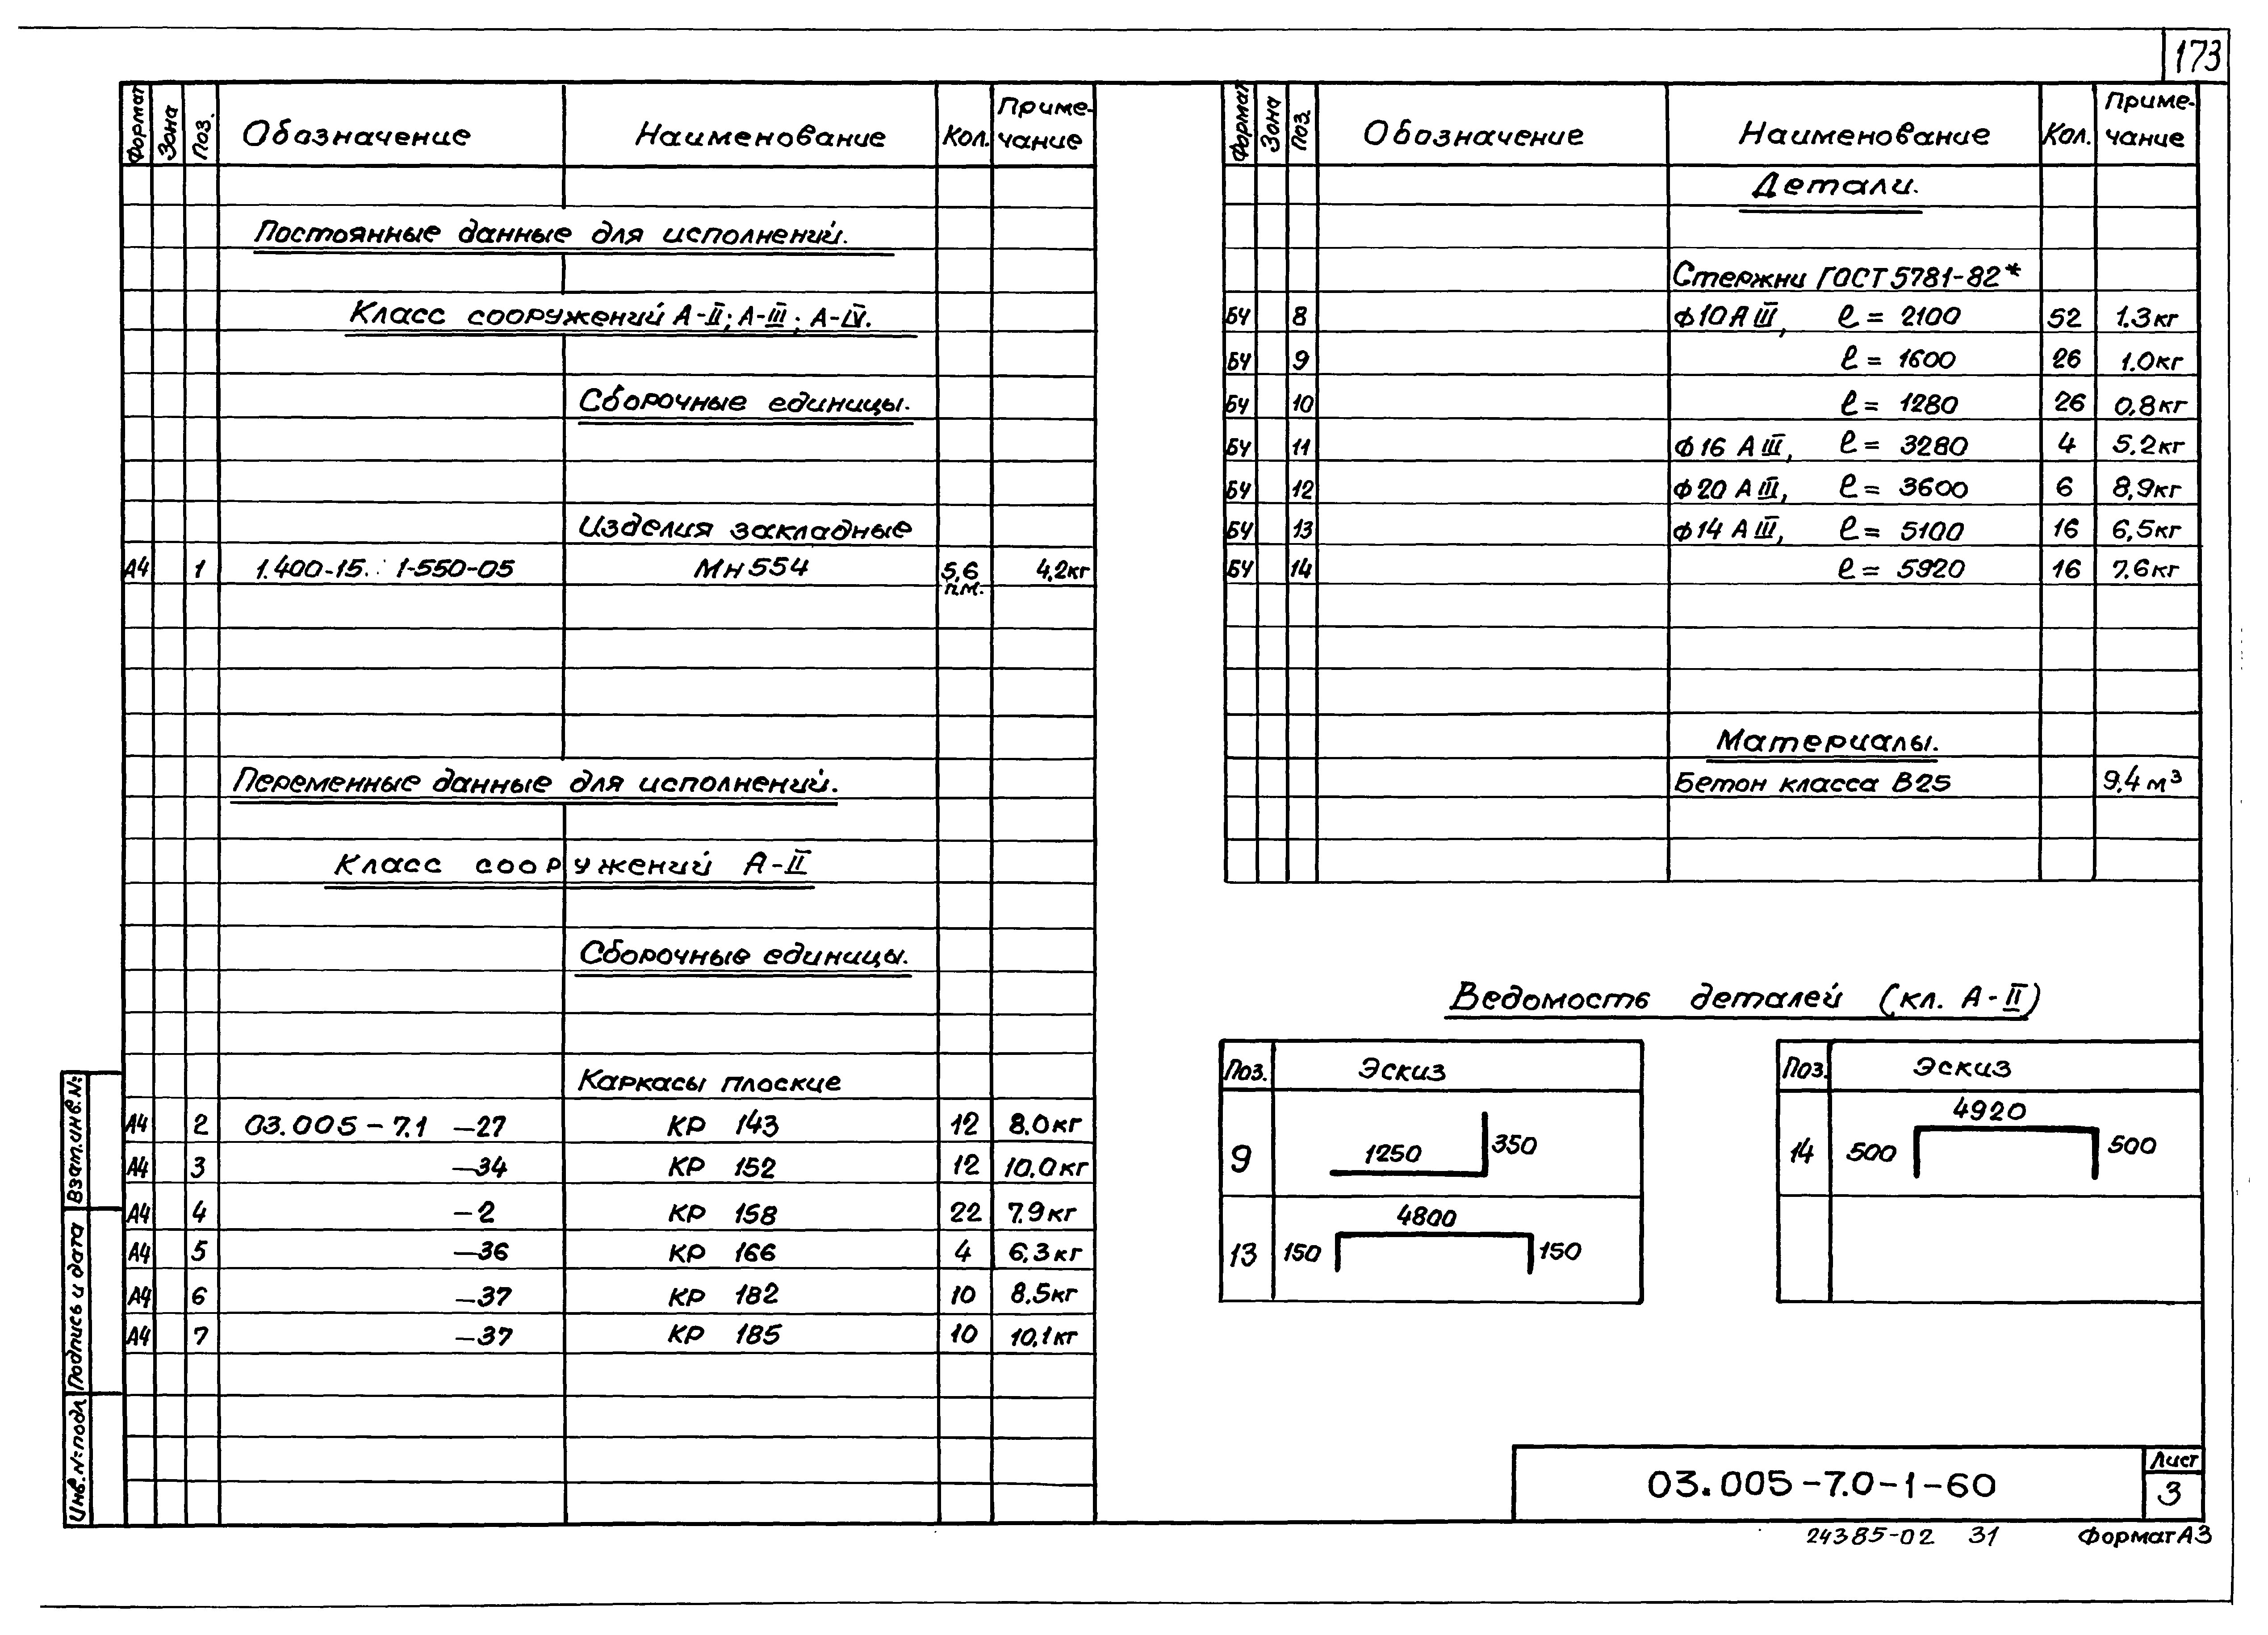 173
Формат Зона Поз. Обозначение Наименование Кол. Приме-чание
Постоянные данные для исполнений.
Класс сооружений А-II; А-III; А-IV.
Сборочные единицы.
Изделия закладные
А4 1 1.400-15. 1-550-05 Мн 554 5,6 п.м. 4,2кг
Переменные данные для исполнений.
Класс сооружений А-II
Сборочные единицы.
Каркасы плоские
А4 2 03.005-7.1 -27 КР 143 12 8.0кг
А4 3 -34 КР 152 12 10.0кг
А4 4 -2 КР 158 22 7.9кг
А4 5 -36 КР 166 4 6,3кг
А4 6 -37 КР 182 10 8.5кг
А4 7 -37 КР 185 10 10,1кг
Формат Зона Поз. Обозначение Наименование Кол. Приме-чание
Детали.
Стержни ГОСТ 5781-82*
БЧ 8 Ф10 А III, ℓ = 2100 52 1.3кг
БЧ 9 ℓ = 1600 26 1.0кг
БЧ 10 ℓ = 1280 26 0,8кг
БЧ 11 Ф16 А III, ℓ = 3280 4 5.2кг
БЧ 12 Ф20 А III, ℓ = 3600 6 8,9кг
БЧ 13 Ф14 А III, ℓ = 5100 16 6,5кг
БЧ 14 ℓ = 5920 16 7.6кг
Материалы.
Бетон класса В25 9,4 м³
Ведомость деталей (кл. А-II)
Поз. Эскиз
9 1250 350
13 150 4800 150
Поз. Эскиз
14 500 4920 500
Взат.инв.№
Подпись и дата
Инв.№подл
03.005-7.0-1-60
Лист
3
24385-02 31 Формат А3